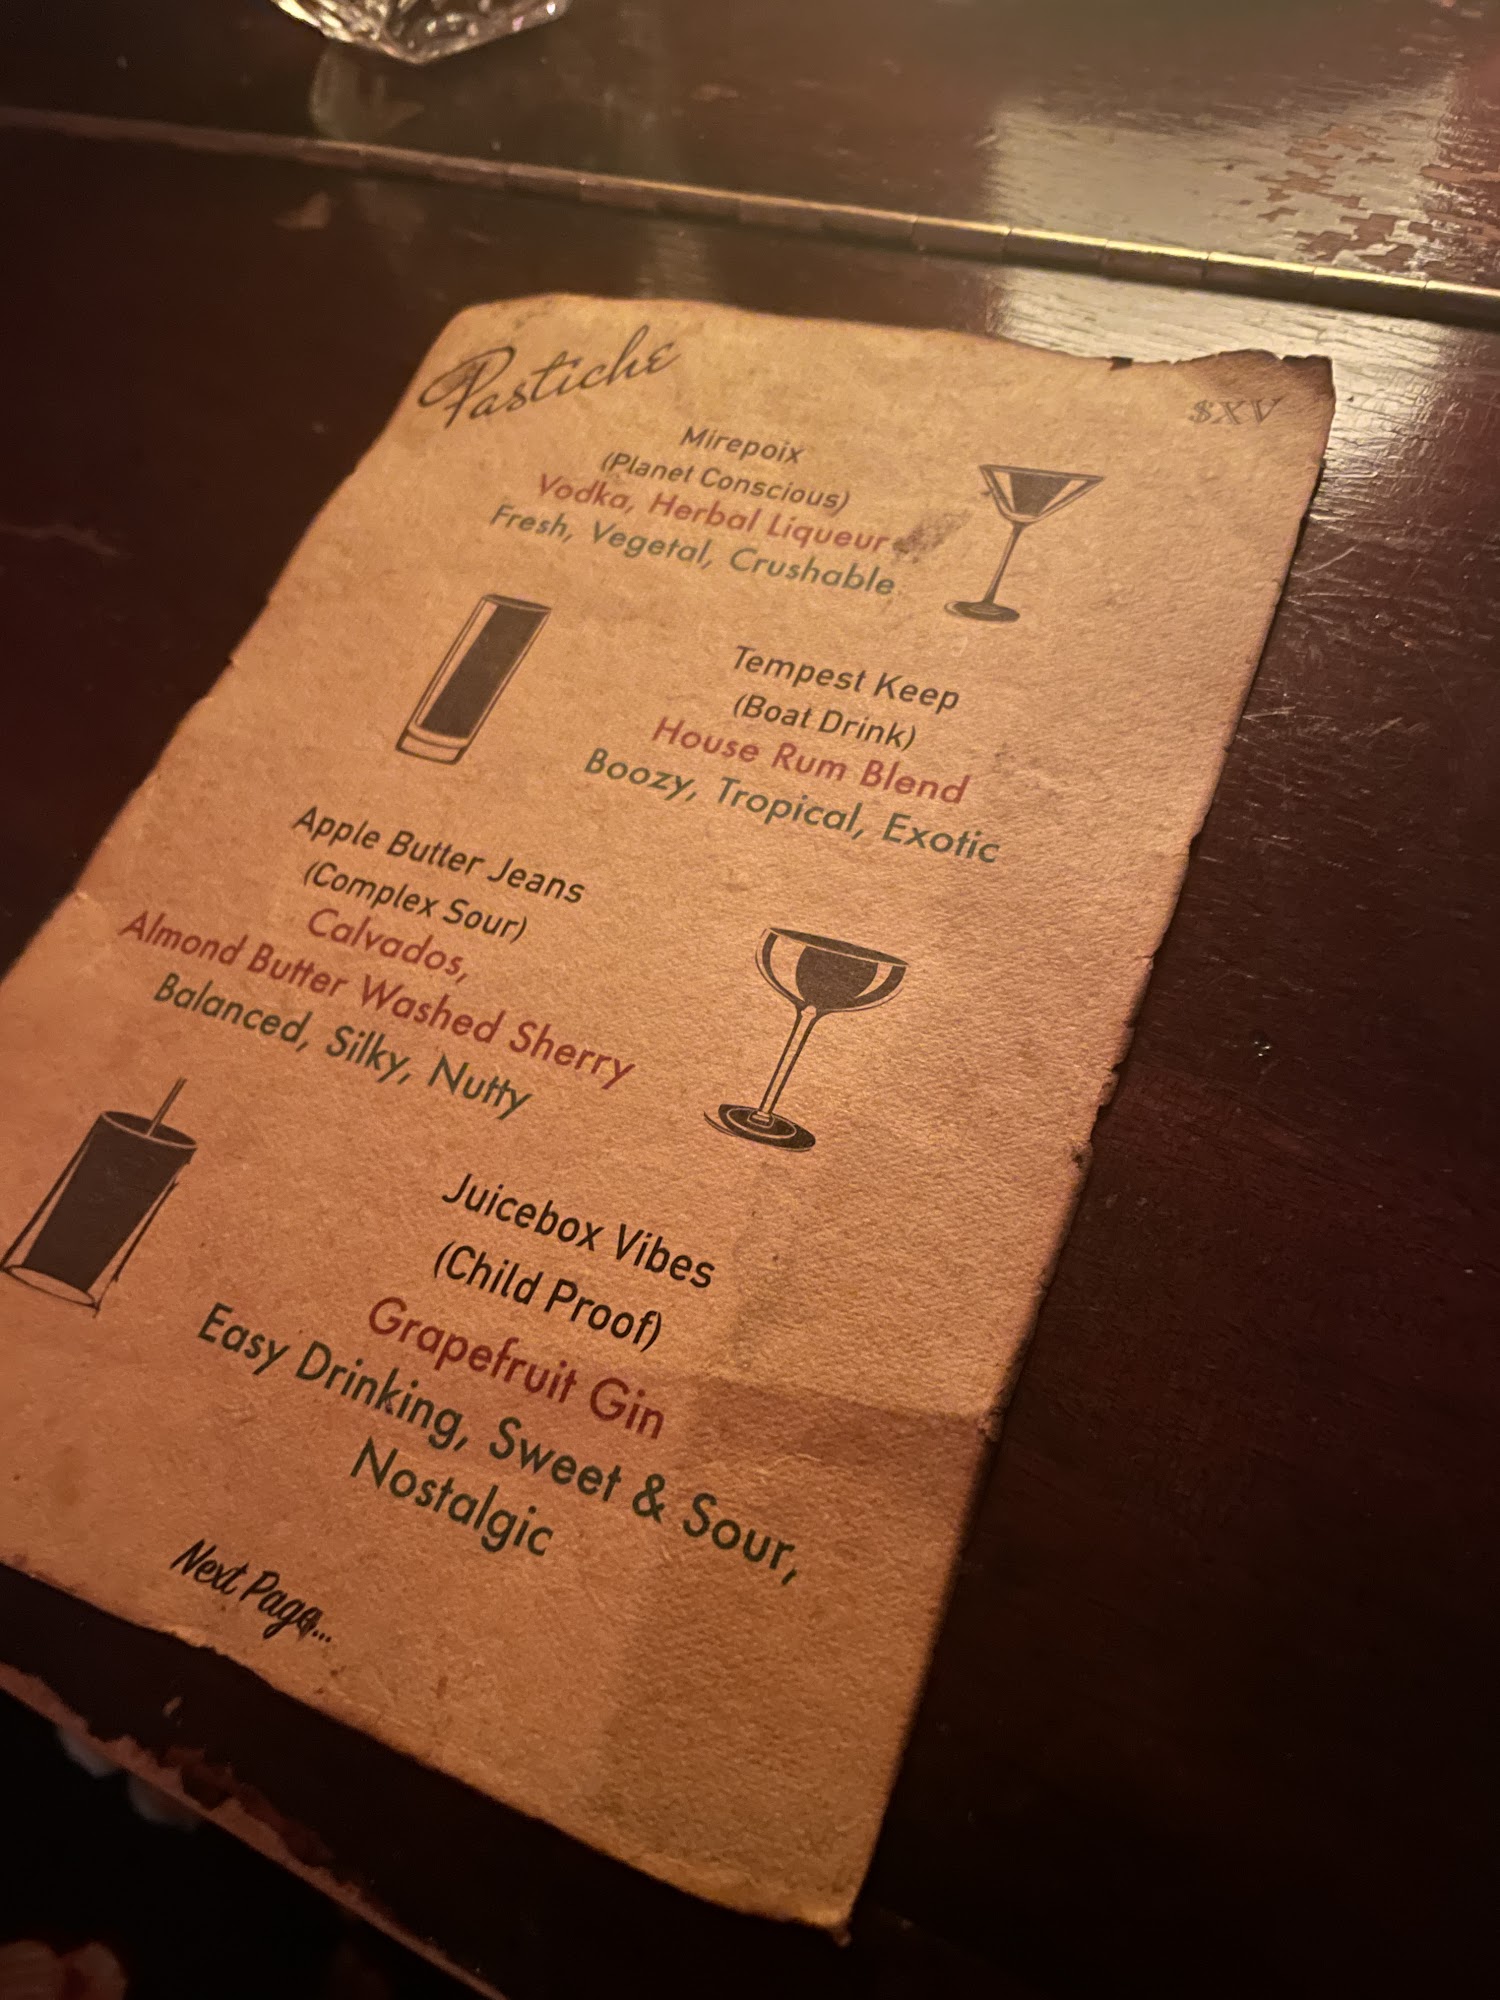 Pastiche
$XV
Mirepoix
(Planet Conscious)
Vodka, Herbal Liqueur
Fresh, Vegetal, Crushable
Tempest Keep
(Boat Drink)
House Rum Blend
Boozy, Tropical, Exotic
Apple Butter Jeans
(Complex Sour)
Calvados,
Almond Butter Washed Sherry
Balanced, Silky, Nutty
Juicebox Vibes
(Child Proof)
Grapefruit Gin
Easy Drinking, Sweet & Sour,
Nostalgic
Next Page...